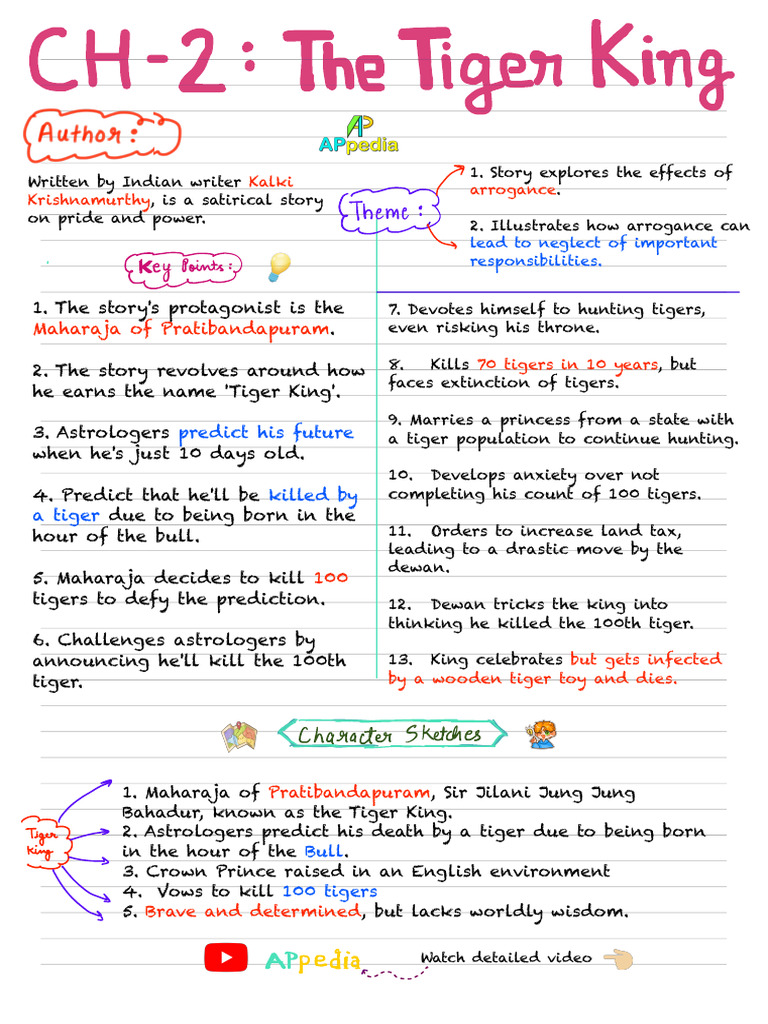 CH-2: The Tiger King
Author:
APpedia
Written by Indian writer Kalki
Krishnamurthy, is a satirical story
on pride and power.
Theme:
1. Story explores the effects of
arrogance.
2. Illustrates how arrogance can
lead to neglect of important
responsibilities.
Key Points:
1. The story's protagonist is the
Maharaja of Pratibandapuram.
2. The story revolves around how
he earns the name 'Tiger King'.
3. Astrologers predict his future
when he's just 10 days old.
4. Predict that he'll be killed by
a tiger due to being born in the
hour of the bull.
5. Maharaja decides to kill 100
tigers to defy the prediction.
6. Challenges astrologers by
announcing he'll kill the 100th
tiger.
7. Devotes himself to hunting tigers,
even risking his throne.
8. Kills 70 tigers in 10 years, but
faces extinction of tigers.
9. Marries a princess from a state with
a tiger population to continue hunting.
10. Develops anxiety over not
completing his count of 100 tigers.
11. Orders to increase land tax,
leading to a drastic move by the
dewan.
12. Dewan tricks the king into
thinking he killed the 100th tiger.
13. King celebrates but gets infected
by a wooden tiger toy and dies.
Character Sketches
Tiger
King
1. Maharaja of Pratibandapuram, Sir Jilani Jung Jung
Bahadur, known as the Tiger King.
2. Astrologers predict his death by a tiger due to being born
in the hour of the Bull.
3. Crown Prince raised in an English environment
4. Vows to kill 100 tigers
5. Brave and determined, but lacks worldly wisdom.
APpedia
Watch detailed video